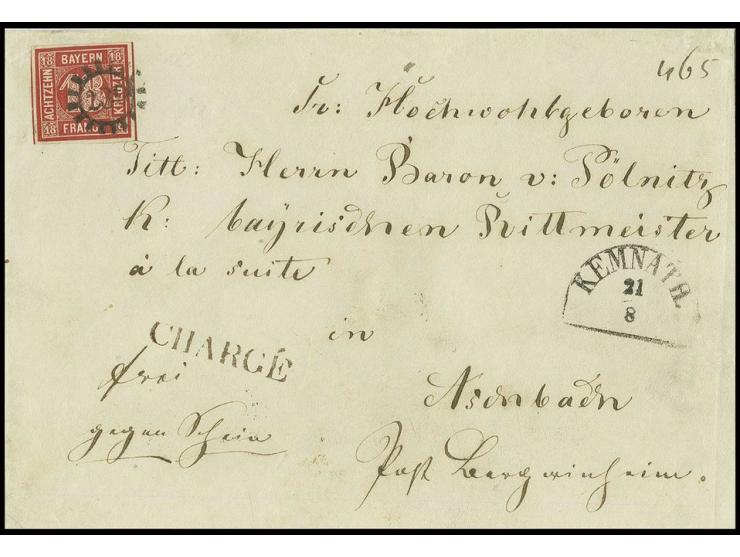 18 BAYERN 18
ACHTZEHN
KREUZER
18 FRANCO
465
Sr: Hochwohlgeboren
Titl: Herrn Baron v: Pölnitz
K: bayrischen Rittmeister
à la suite
KEMNATH.
21
8
in
CHARGÉ
frei
Aschbach
gegen Schein
Post Burgwinheim.